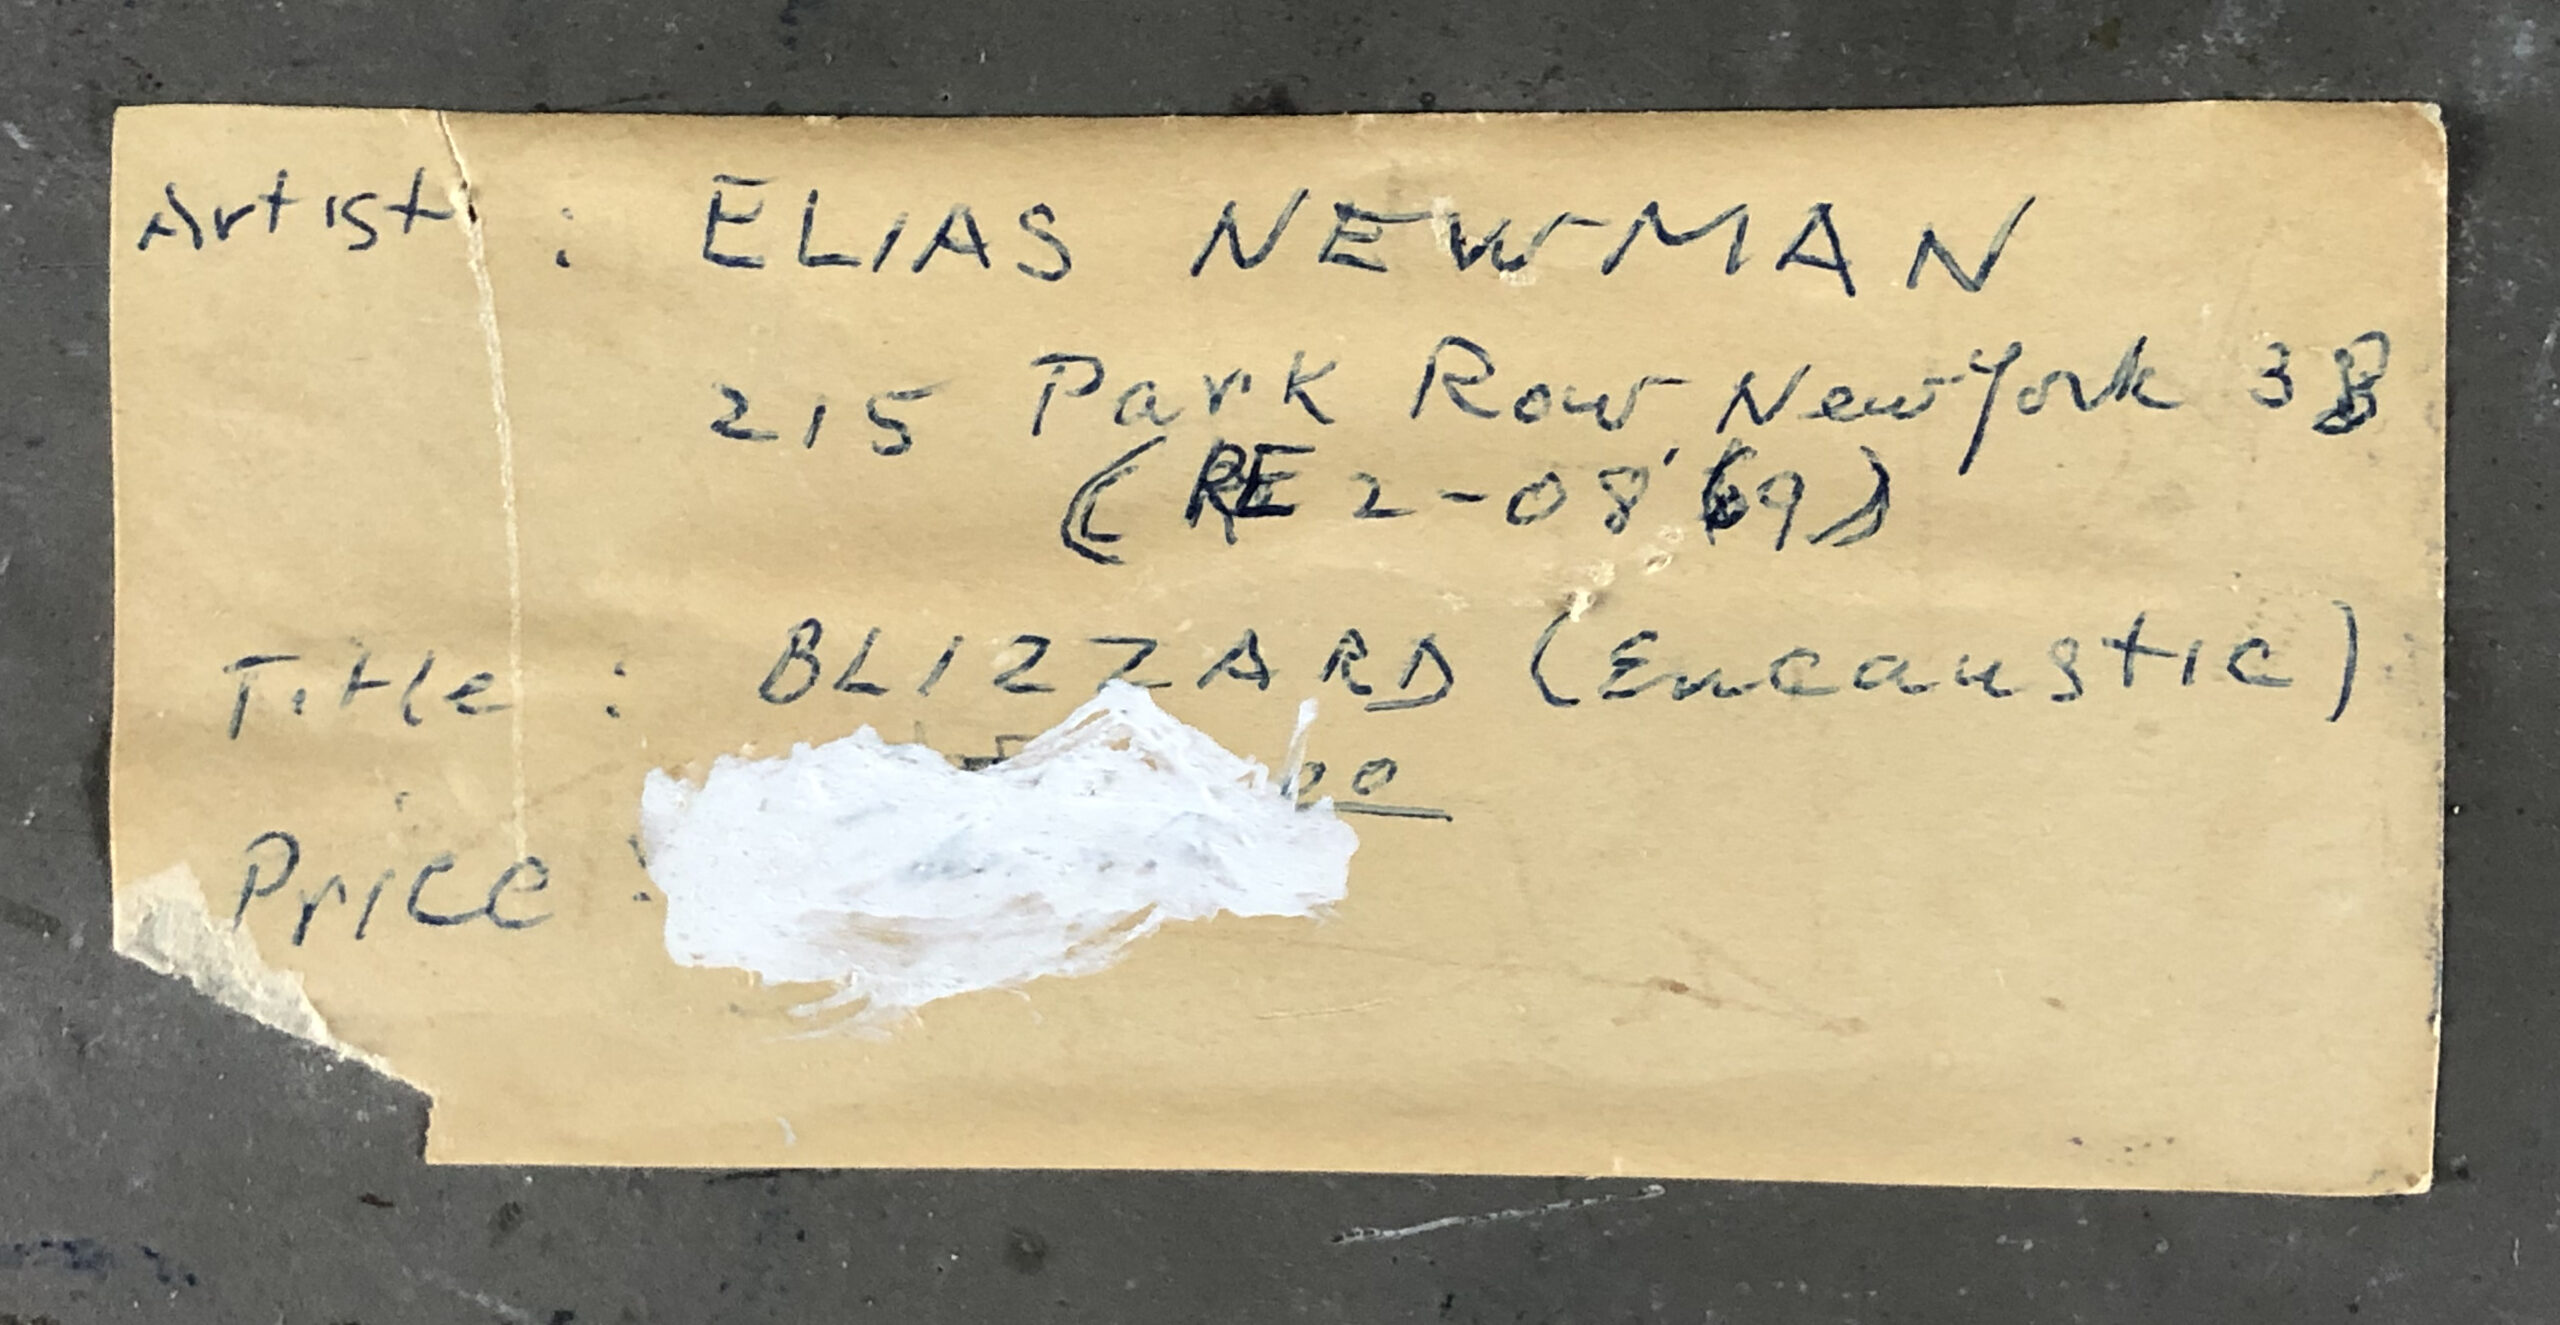 Artist : ELIAS NEWMAN
215 Park Row, New York 38
(RE 2-0869)
Title : BLIZZARD (Encaustic)
00
Price :